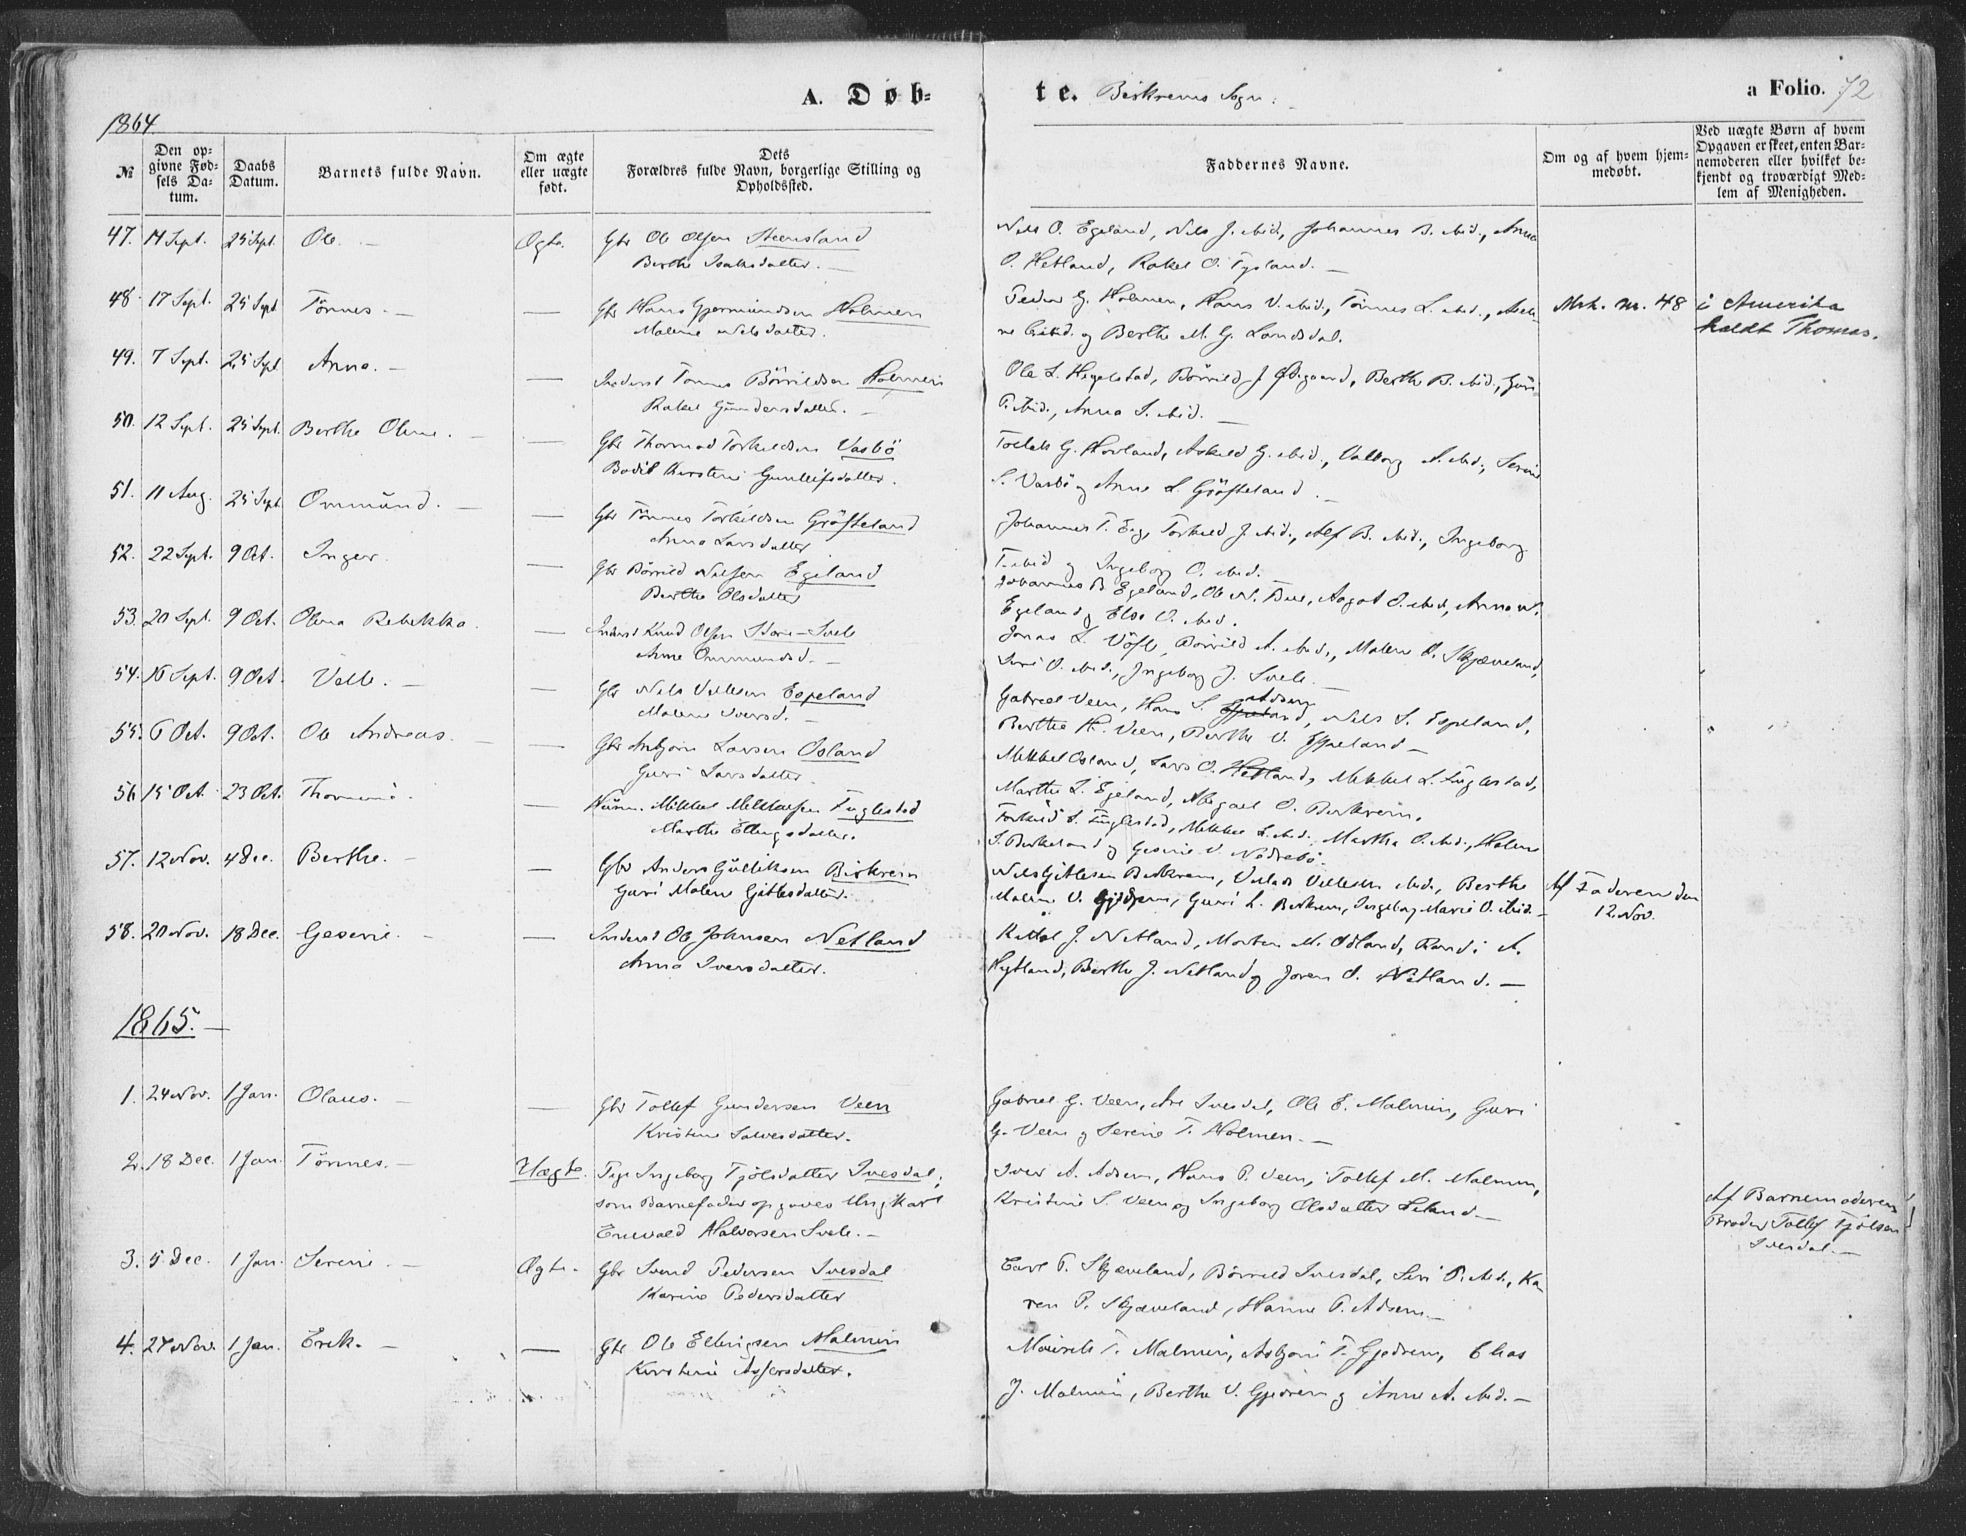 A. Døb-
te. Birkrems Sogn.
a Folio. 72
1864
№
Den op-
givne Fød-
sels Da-
tum.
Daabs
Datum.
Barnets fulde Navn.
Om ægte
eller uægte
født.
Dets
Forældres fulde Navn, borgerlige Stilling og
Opholdssted.
Faddernes Navne.
Om og af hvem hjem-
medøbt.
Ved uægte Børn af hvem
Opgaven er skeet, enten Bar-
nemoderen eller hvilket be-
kjendt og troværdigt Med-
lem af Menigheden.
47. 14 Sept. 25 Sept. Ole. Ægte. Gbr Ole Olsen Steensland
Berthe Isaksdatter.
Nils O. Egeland, Nils J. ibid., Johannes B. ibid., Anna
O. Hetland, Rakel O. Tysland.
48. 17 Sept. 25 Sept Tønnes. — Gbr Hans Gjermundsen Holmen
Malene Nilsdatter.
Peder G. Holmen, Hans V. ibid., Tønnes L. ibid.,
ibid. og Berthe M. G. Landsdal.
Mrk. nr. 48 i Amerika
kaldt Thomas.
49. 7 Sept. 25 Sept Anna. — Inderst Tønnes Børrildsen Holmen
Rakel Gundersdatter.
Ole L. Hegelstad, Børrild J. Ødegaard, Berthe B. ibid., Guri
P. ibid., Anna S. ibid.
50. 12 Sept. 25 Sept. Berthe Oline. — Gbr Thormod Torkildsen Vasbö
Bodil Kirstine Gunleifsdatter.
Tollak G. Hovland, Askild G. ibid., Valborg A. ibid., Serine
S. Vasbö og Anne L. Gröfteland.
51. 11 Aug. 25 Sept Ommund. — Gbr Tønnes Torkildsen Gröfteland
Anna Larsdatter
Johannes T. Eeg, Torkild J. ibid., Alf B. ibid., Ingeborg
T. ibid og Ingeborg O. ibid.
52. 22 Sept. 9 Oct. Inger. — Gbr Börrild Nilsen Egeland
Berthe Olsdatter
Johannes B Egeland, Ole N. Bue, Aagot O. ibid, Anna N.
Egeland og Else O. ibid.
53. 20 Sept. 9 Oct. Olena Rebekka. — Inderst Knud Olsen Store-Svele
Anne Ommundsd.
Jonas L. , Börrild A. ibid., Malene O. Skjæveland,
Siri O. ibid., Ingeborg J. Svele.
54. 16 Sept. 9 Oct. Velle. — Gbr Nils Vellesen Espeland
Malene Iversd.
Gabriel Veen, Hans S. Adsen, Nils S. Espeland,
Berthe H. Veen, Berthe V. Espeland
55. 6 Oct. 9 Oct. Ole Andreas. — Gbr Asbjørn Larsen Osland
Guri Larsdatter.
Mikkel Osland, Lars O. Hetland, Mikkel L. Fuglestad,
Marthe L. Egeland, Abigael O. Birkrem.
56. 15 Oct. 23 Oct. Thormod. — Huusm. Mikkel Mikkelsen Fuglestad
Marthe Ellingsdatter.
Torkild S. Fuglestad, Mikkel L. ibid., Martha O. ibid., Helene
S. Birkeland og Gesine V. Nedrebö.
57. 12 Nov. 4 Dec. Berthe. — Gbr Anders Gulliksen Birkrem
Guri Malene Gitlesdatter.
Nils Gitlesen Birkrem, Vellesen ibid., Berthe
Malene V. Gjedrem, Guri L. Birkrem, Ingeborg Marie O. ibid.
Af Faderen den
12. Nov.
58. 20 Nov. 18 Dec. Gesine. — Inderst Ole Johnsen Netland
Anna Iversdatter.
Kittel J. Netland, Morten M. Osland, Randi A.
Hytland, Berthe J. Netland og Joren O. Netland.
1865.
1. 24 Nov. 1 Jan. Olaus. — Gbr Tollef Gundersen Veen
Kristine Salvesdatter.
Gabriel G. Veen, Ivesdal, Ole E. Malmin, Guri
G. Veen og Serine T. Holmen.
2. 18 Dec. 1 Jan. Tönnes. Uægte. Pige Ingeborg Tjölsdatter Ivesdal;
som Barnefader opgives Ungkarl
Enevald Halvorsen Svele.
Iver A. Adsen, Hans P. Veen, Tollef M. Malmin,
Kristine S. Veen og Ingeborg Olsdatter
Af Barnemoderens
Broder Tollef Tjölsen
Ivesdal.
3. 5 Dec. 1 Jan. Serine. Ægte. Gbr Svend Pedersen Ivesdal
Karine Pedersdatter
Carl P. Skjæveland, Börrild Ivesdal, Siri P. ibid., Ka-
ren P. Skjæveland, Hanne P. Adsen.
4. 27 Nov. 1 Jan. Erik. — Gbr Ole Ellingsen Malmin
Kirstine Assersdatter.
Mauritz T. Malmin, Asbjörn T. Gjedrem, Elias
J. Malmin, Berthe V. Gjedrem og Anne A. ibid.